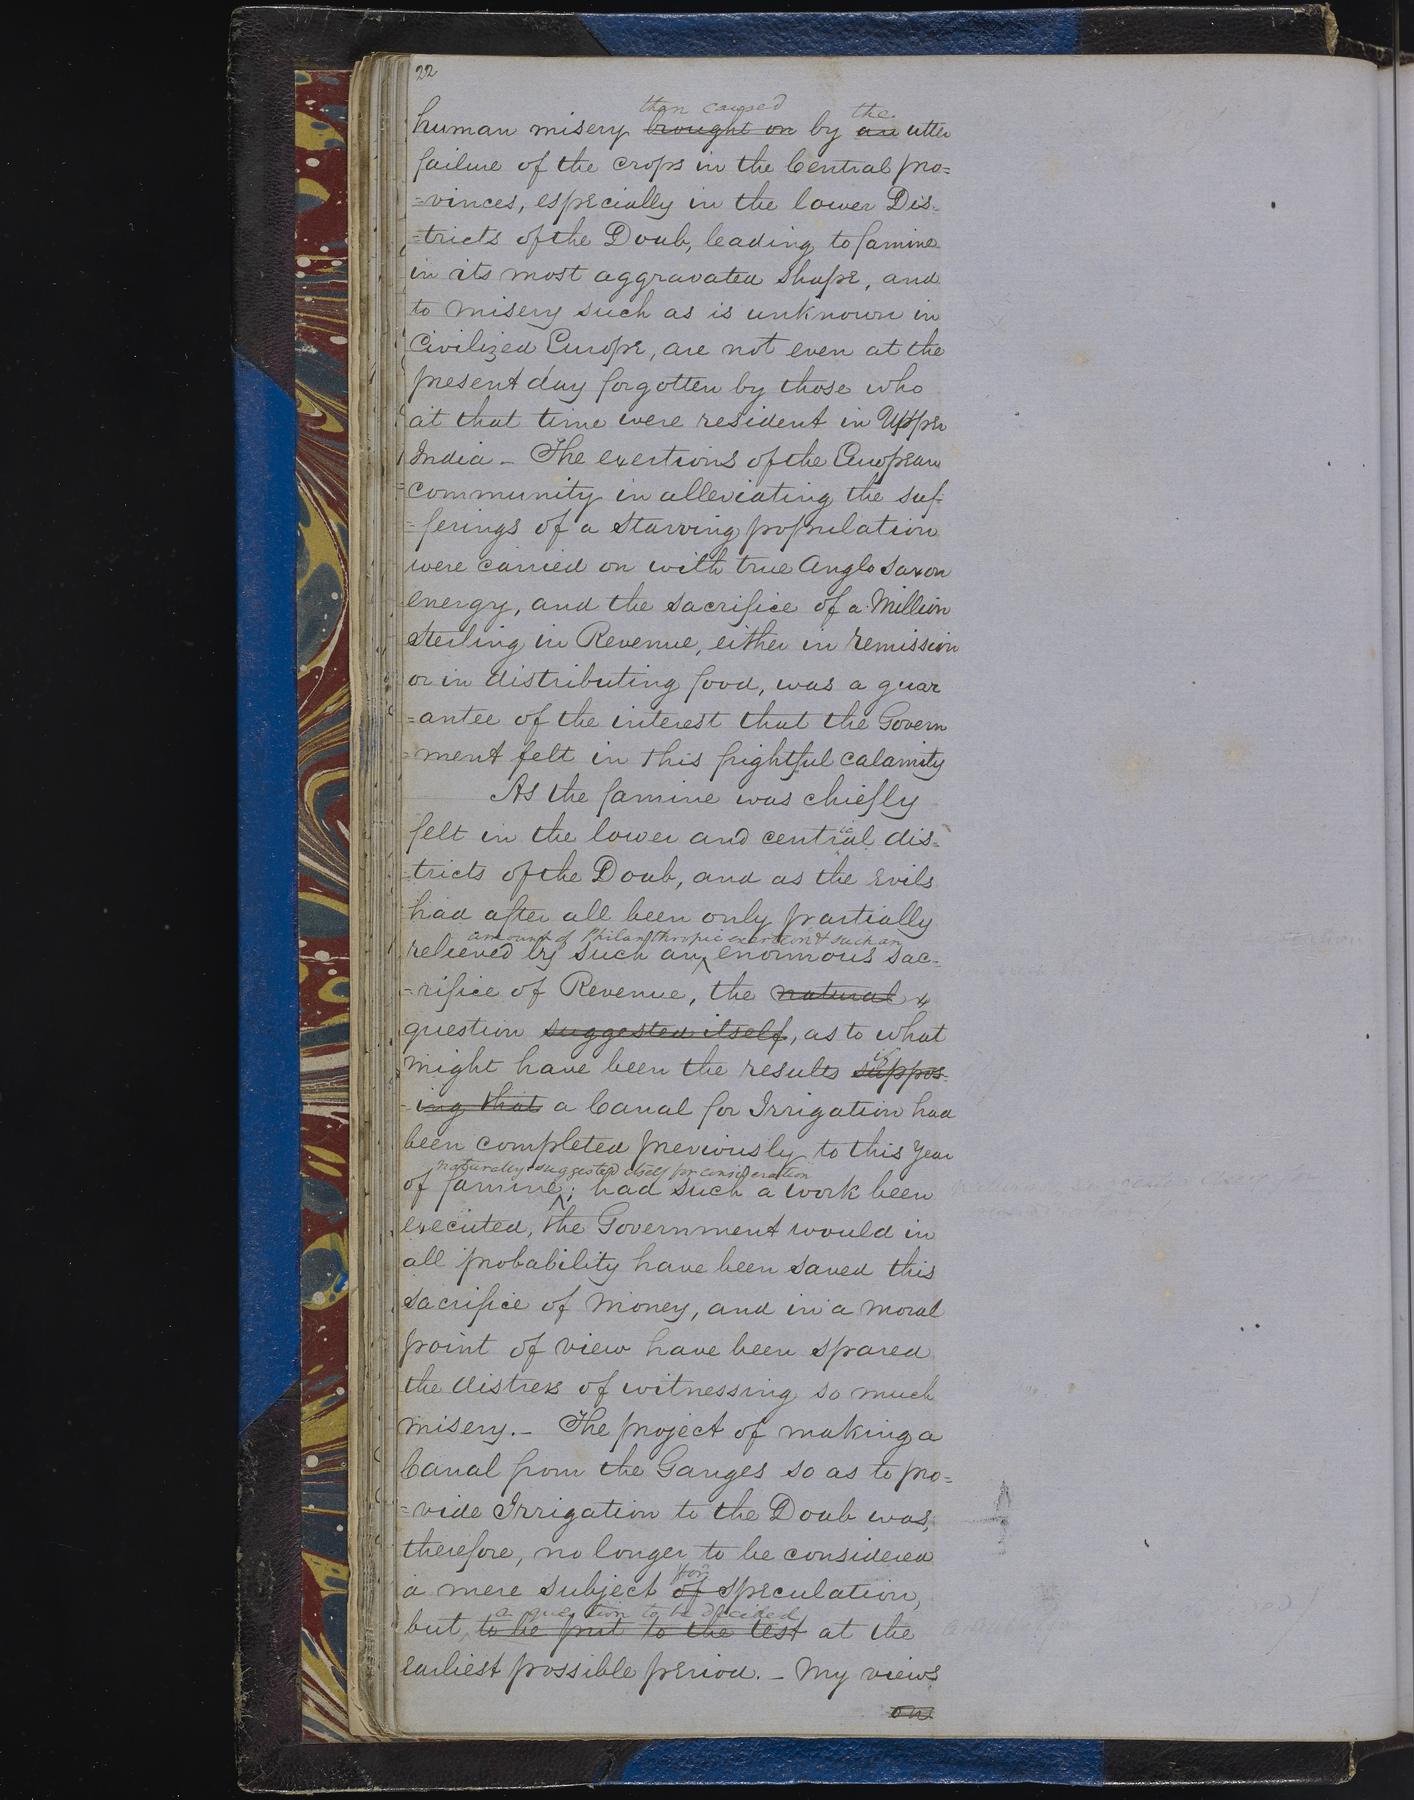 22
than caused the
human misery brought on by an utter
failure of the crops in the Central pro=
=vinces, especially in the lower Dis-
=tricts of the Doab, leading to famine
in its most aggravated shape, and
to misery such as is unknown in
Civilized Europe, are not even at the
present day forgotten by those who
at that time were resident in Upper
India - The exertions of the European
community in alleviating the suf-
=ferings of a starving population
were carried on with true Anglo Saxon
energy, and the sacrifice of a Million
Sterling in Revenue, either in remission
or in distributing food, was a guar
=antee of the interest that the Govern
=ment felt in this frightful calamity
As the famine was chiefly
felt in the lower and central dis-
=tricts of the Doab, and as the evils
had after all been only partially
amount of Philanthropic exertion & such an
relieved by such an enormous sac-
=rifice of Revenue, the natural
question suggested itself, as to what
if
might have been the results suppos-
-ing that a Canal for Irrigation had
been completed previously to this year
naturally suggested itself for consideration
of famine; had such a work been
executed, the Government would in
all probability have been saved this
sacrifice of money, and in a moral
point of view have been spared
the distress of witnessing so much
misery.- The project of making a
Canal from the Ganges so as to pro=
=vide Irrigation to the Doab was,
therefore, no longer to be considered
for
a mere subject of speculation,
a question to be decided
but to be put to the test at the
earliest possible period. - My views
on